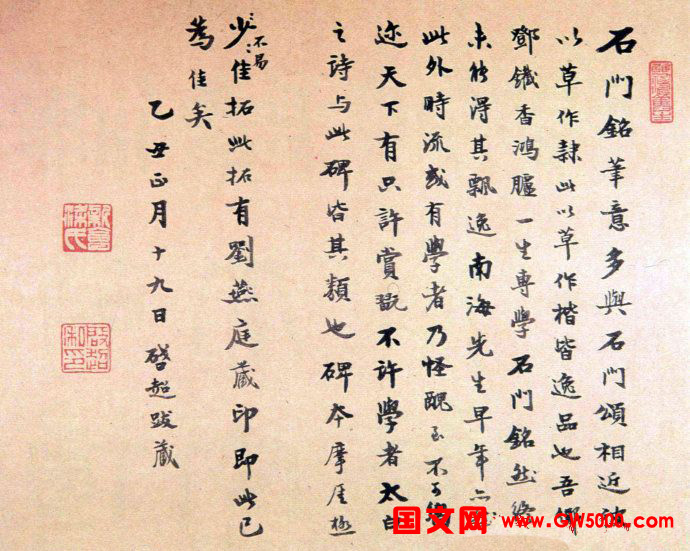 石門銘筆意多與石門頌相近彼
以草作隸此以草作楷皆逸品也吾鄉
鄧鐵香鴻臚一生專學石門銘然終
未能得其飄逸南海先生早年亦
此外時流或有學者乃怪醜至不可嚮
迹天下有只許賞翫不許學者太白
之詩與此碑皆其類也碑本摩厓極
少不易佳拓此拓有劉燕庭藏印即此已
為佳矣
乙丑正月十九日啓超跋藏
新會梁氏
啟超私印
国文网 www.GW5000.com